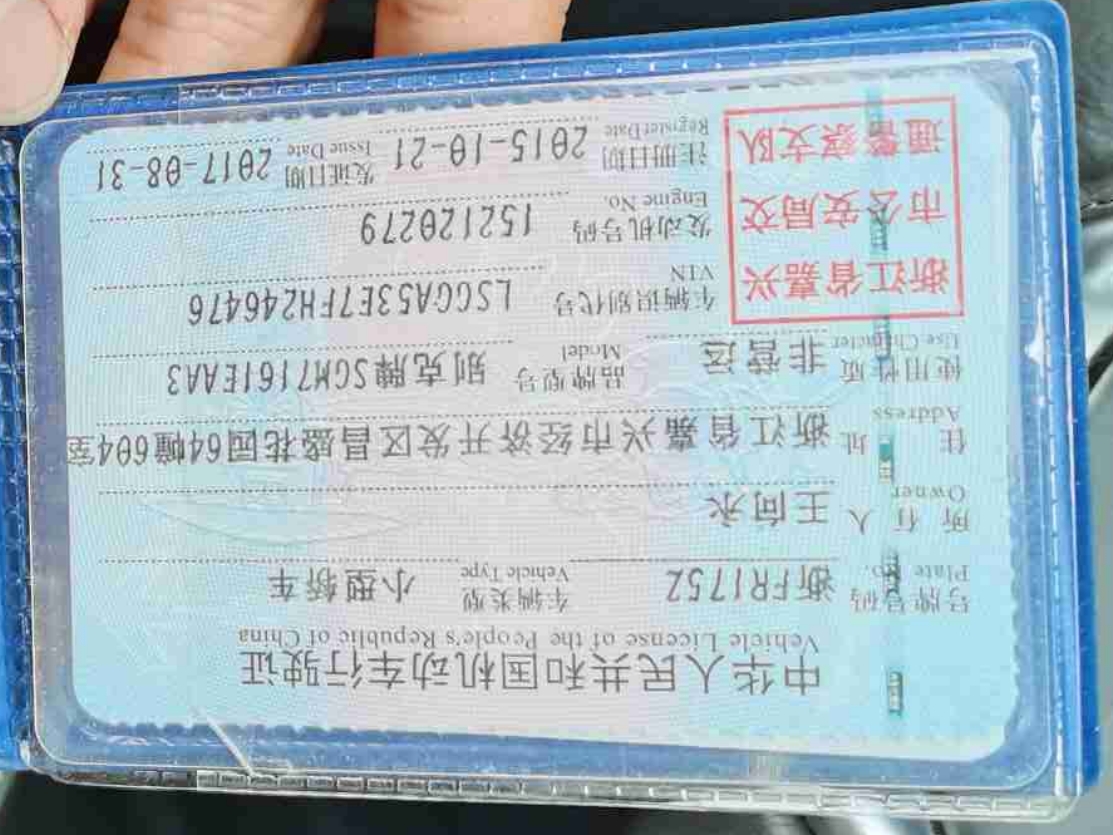 中华人民共和国机动车行驶证
Vehicle License of the People's Republic of China
号牌号码 浙FR175Z 车辆类型 小型轿车
Plate No. Vehicle Type
所有人 王向永
Owner
住址 浙江省嘉兴市经济开发区昌盛花园64幢604室
Address
使用性质 非营运 品牌型号 别克牌SGM7161EAA3
Use Character Model
浙江省嘉兴
市公安局交
通警察支队
车辆识别代号 LSGGA53E7FH246476
VIN
发动机号码 152120279
Engine No.
注册日期 2015-10-21 发证日期 2017-08-31
Register Date Issue Date